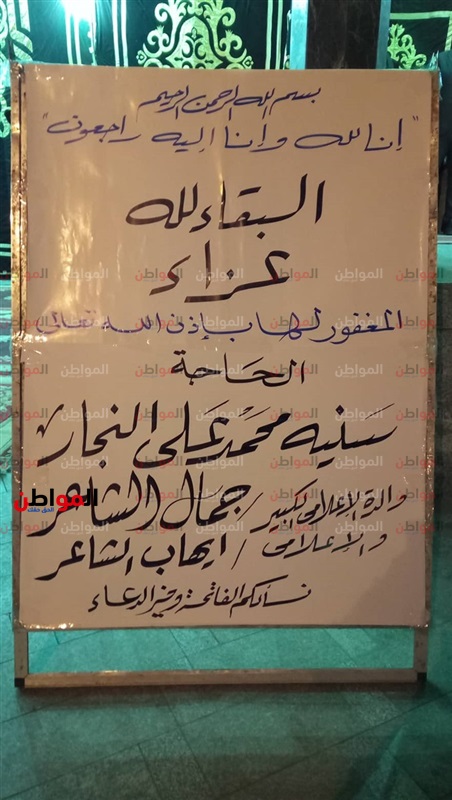 بسم الله الرحمن الرحيم
"إنا لله وإنا إليه راجعون"
البقاء لله
عزاء
المغفور لها بإذن الله تعالى
الحاجة
سنيه محمد على النجار
والدة الإعلامى الكبير / جمال الشاعر
والإعلامى / إيهاب الشاعر
نسألكم الفاتحة وخير الدعاء
المواطن